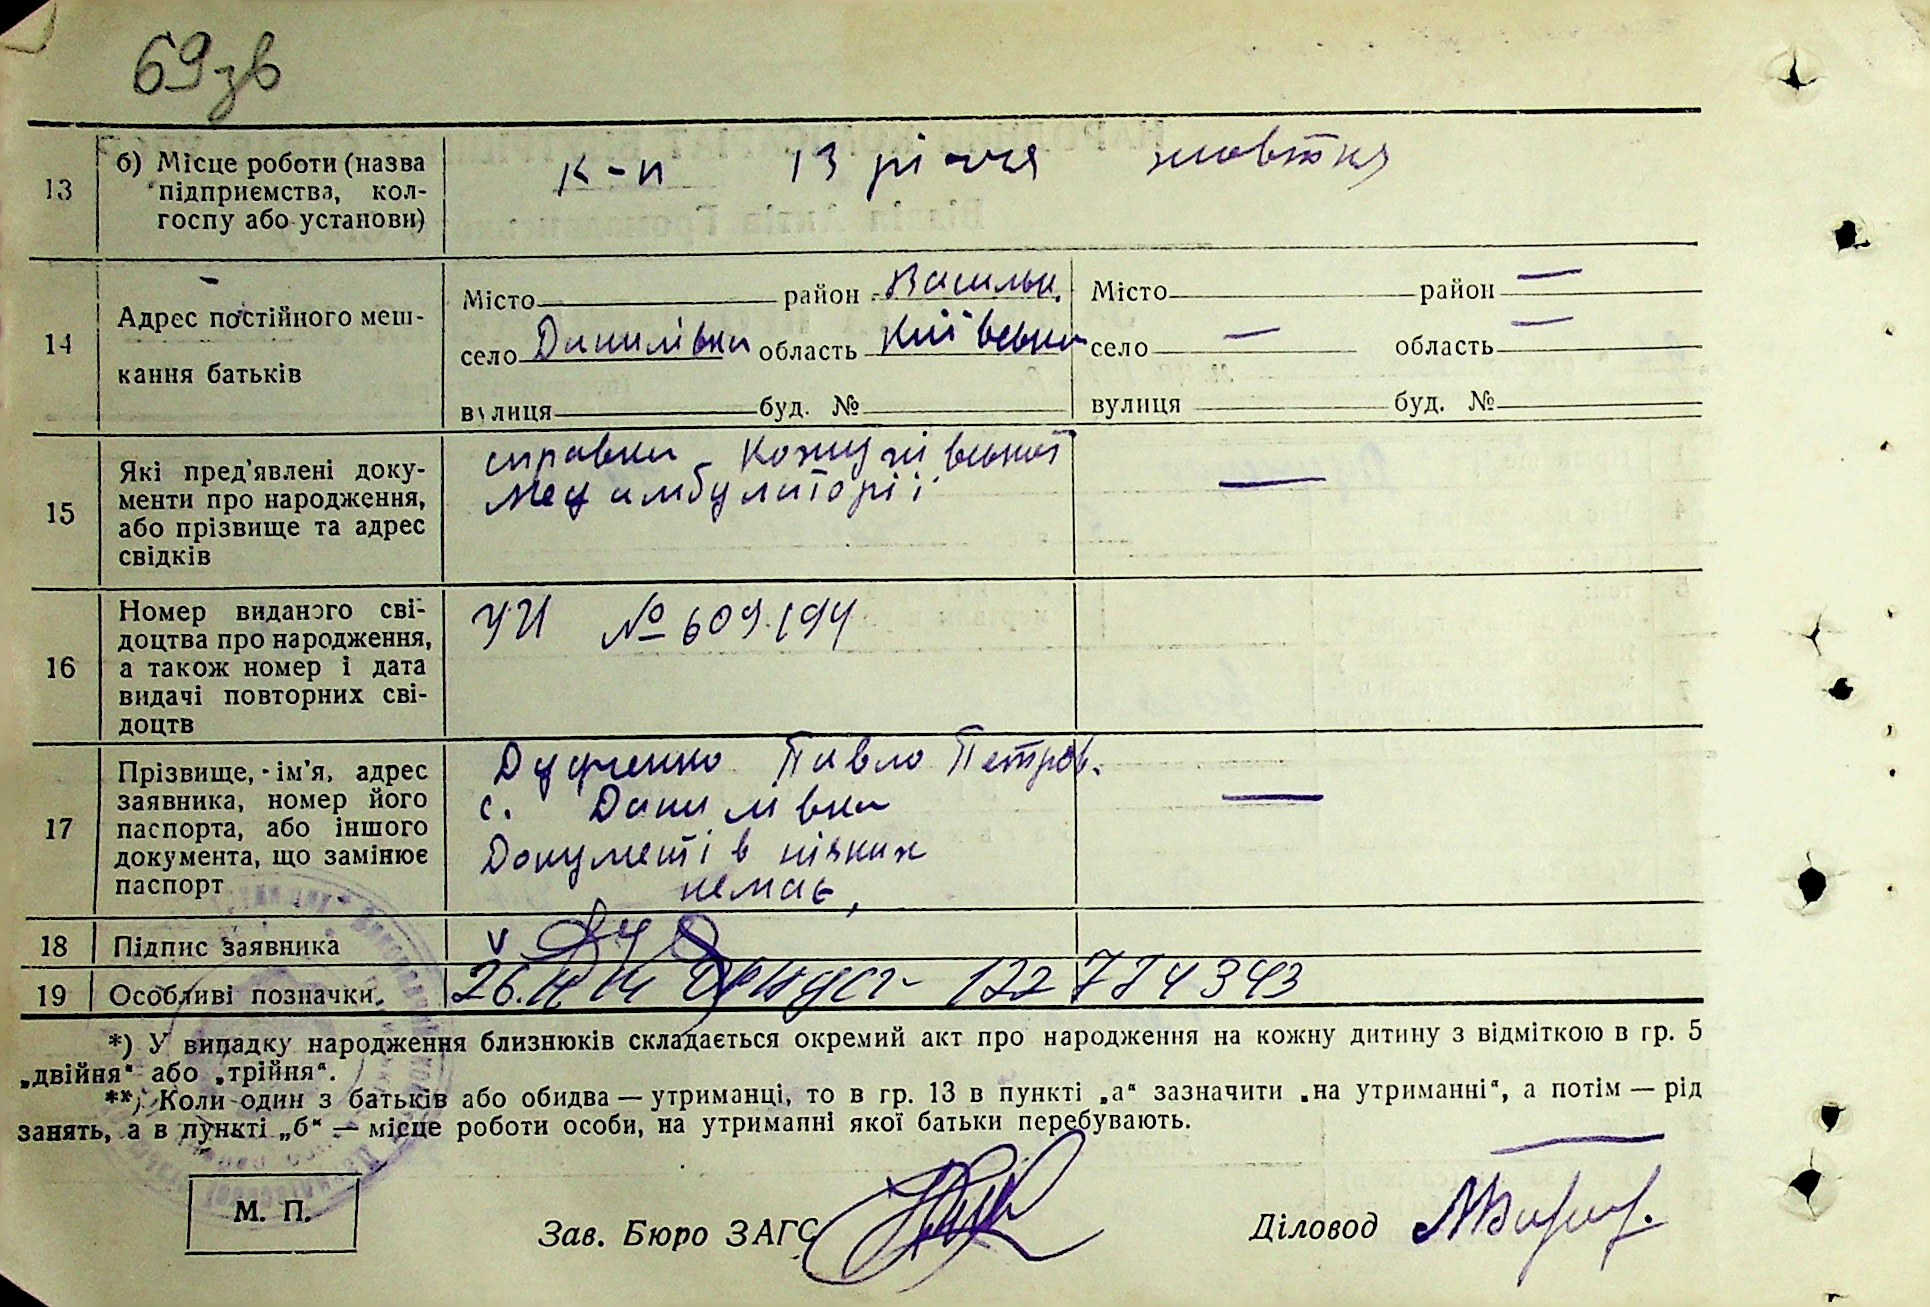 69зв
13
б) Місце роботи (назва
підприємства, кол-
госпу або установи)
к-п 13 річчя жовтня
14
Адрес постійного меш-
кання батьків
Місто район Васильк. Місто район —
село Данилівка область Київська село — область —
вулиця буд. № вулиця буд. №
15
Які пред'явлені доку-
менти про народження,
або прізвище та адрес
свідків
справка Кожухівської
Мед амбулаторії
—
16
Номер виданого сві-
доцтва про народження,
а також номер і дата
видачі повторних сві-
доцтв
УИ № 609.194
17
Прізвище, ім'я, адрес
заявника, номер його
паспорта, або іншого
документа, що замінює
паспорт
Павло Петров.
с. Данилівка
Документів ніяких
немає,
—
18 Підпис заявника
v
19 Особливі позначки.
*) У випадку народження близнюків складається окремий акт про народження на кожну дитину з відміткою в гр. 5
„двійня“ або „трійня“.
**) Коли один з батьків або обидва — утриманці, то в гр. 13 в пункті „а“ зазначити „на утриманні“, а потім — рід
занять, а в пункті „б“ — місце роботи особи, на утриманні якої батьки перебувають.
М. П.
Зав. Бюро ЗАГС
Діловод